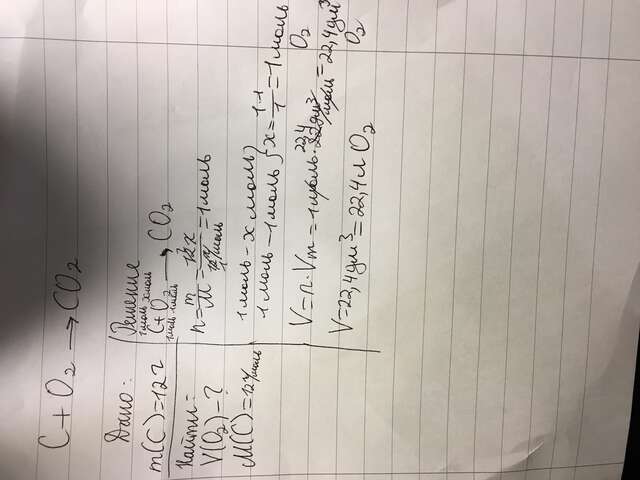 C + O₂ → CO₂
Дано:
m(C)=12г
Найти:
V(O₂)-?
M(C)=12г/моль
Решение
1моль xмоль
C+O₂ → CO₂
1моль 1моль
n=m/M=12г/12г/моль=1моль
1моль-xмоль
1моль-1моль } x=1·1/1=1моль O₂
V=n·Vm=1моль·22,4дм³/моль=22,4дм³ O₂
V=22,4дм³=22,4л O₂